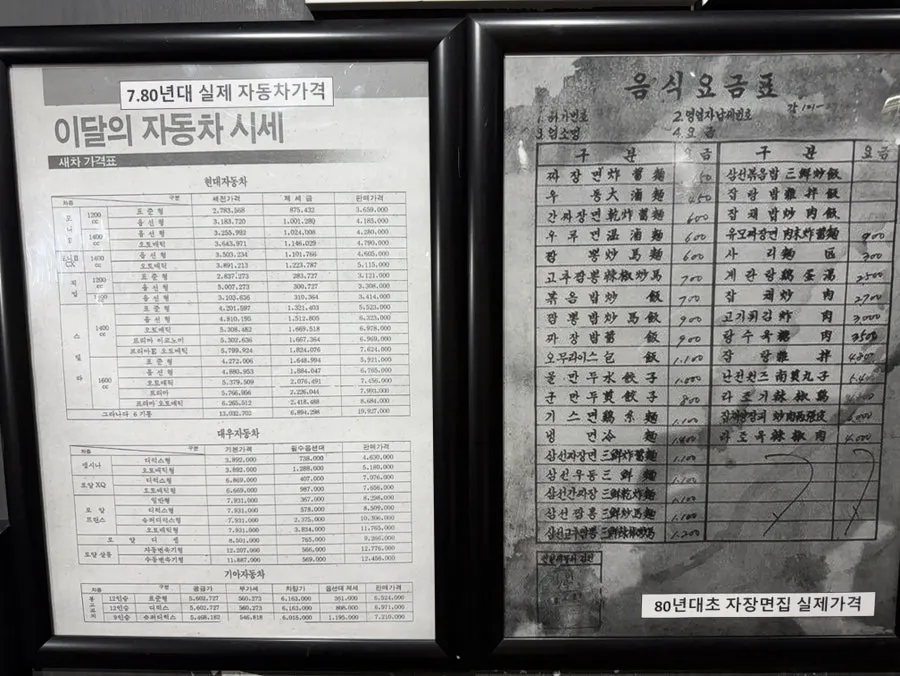 7.80년대 실제 자동차가격
이달의 자동차 시세
새차 가격표
현대자동차
차종 구분 세전가격 제 세 금 판매가격
1200cc 표 준 형 2.783.568 875.432 3.659.000
옵 션 형 3.183.720 1.001.280 4.185.000
1400cc 옵 션 형 3.255.992 1.024.008 4.280.000
오토매틱 3.643.971 1.146.029 4.790.000
CX 1400cc 옵 션 형 3.503.234 1.101.766 4.605.000
오토매틱 3.891.213 1.223.787 5.115.000
1200cc 표 준 형 2.837.273 283.727 3.121.000
옵 션 형 300.727 3.308.000
옵 션 형 3.103.636 310.364 3.414.000
스 텔 라 1400cc 표 준 형 4.201.597 1.321.403 5.523.000
옵 션 형 4.810.195 1.512.805 6.323.000
오토매틱 5.308.482 1.669.518 6.978.000
프리마 이코노미 5.302.636 1.667.364 6.969.000
오토매틱 5.799.924 1.824.076 7.624.000
1600cc 표 준 형 4.272.006 1.648.994 5.921.000
옵 션 형 4.880.953 1.884.047 6.765.000
오토매틱 5.379.509 2.076.491 7.456.000
프리마 5.766.956 2.226.044 7.993.000
프리마 오토매틱 6.265.512 2.418.488 8.684.000
그라나다 6 기통 13.032.702 6.894.298 19.927.000
대우자동차
차종 구분 기본가격 필수옵션대 판매가격
맵시나 디럭스형 3.892.000 738.000 4.630.000
오토매틱형 3.892.000 1.288.000 5.180.000
로얄 XQ 디럭스형 407.000
오토매틱형 6.669.000 987.000 7.656.000
로 얄 프린스 일반형 7.931.000 367.000 8.298.000
디럭스형 7.931.000 578.000 8.509.000
슈퍼디럭스형 7.931.000 2.375.000 10.306.000
오토매틱형 7.931.000 3.834.000 11.765.000
로 얄 디 젤 8.501.000 765.000 9.266.000
로얄 살롱 자동변속기형 566.000
수동변속기형 11.887.000 569.000 12.456.000
기아자동차
차종 구분 공급가 부가세 차량가 옵션대 제세 판매가격
봉고코치 12인승 표준형 5.602.727 560.273 6.163.000 361.000 6.524.000
12인승 디럭스 5.602.727 560.273 6.163.000 808.000 6.971.000
9인승 슈퍼디럭스 5.468.182 546.818 6.015.000 1.195.000 7.210.000
음식요금표
1. 허가번호 2. 영업자납세번호
3. 업소명 4. 요 금
구 분 요 금 구 분 요금
짜 장 면 炸 醬 麵 삼선볶음밥 三鮮炒飯
우 동 大 滷 麵 450 잡 탕 밥 雜 拌 飯
간짜장면 乾炸醬麵 600 잡 채 밥 炒 肉 飯
우 루 면 溫 滷 麵 600 유모짜장면 肉末炸醬麵
짬 뽕 炒 馬 麵 600 사 리 麵 300
고추짬뽕 辣椒炒馬 700 계 란 탕 鷄 蛋 湯 2,500
볶 음 밥 炒 飯 700 잡 채 炒 肉 2,700
짬 뽕 밥 炒 馬 飯 900 고기튀김 炸 肉 3,000
짜 장 밥 醬 飯 900 탕 수 육 糖 肉 3500
오무라이스 包 飯 1.100 잡 탕 雜 拌
물 만 두 水 餃 子 1.000 난전완즈 南煎丸子
군 만 두 煎 餃 子 800 라 조 기 辣 椒 鷄
기 스 면 鷄 糸 麵 1.100 炒肉兩張皮
냉 면 冷 麵 1.400 라 조 육 辣 椒 肉 4.000
삼선짜장면 三鮮炸醬麵 1.100
삼선우동 三 鮮 麵 1.100
삼선간짜장 三鮮乾炸麵 1.100
삼선 짬 뽕 三鮮炒馬麵 1.100
삼선고추짬뽕 三鮮辣椒炒馬 1.200
80년대초 자장면집 실제가격